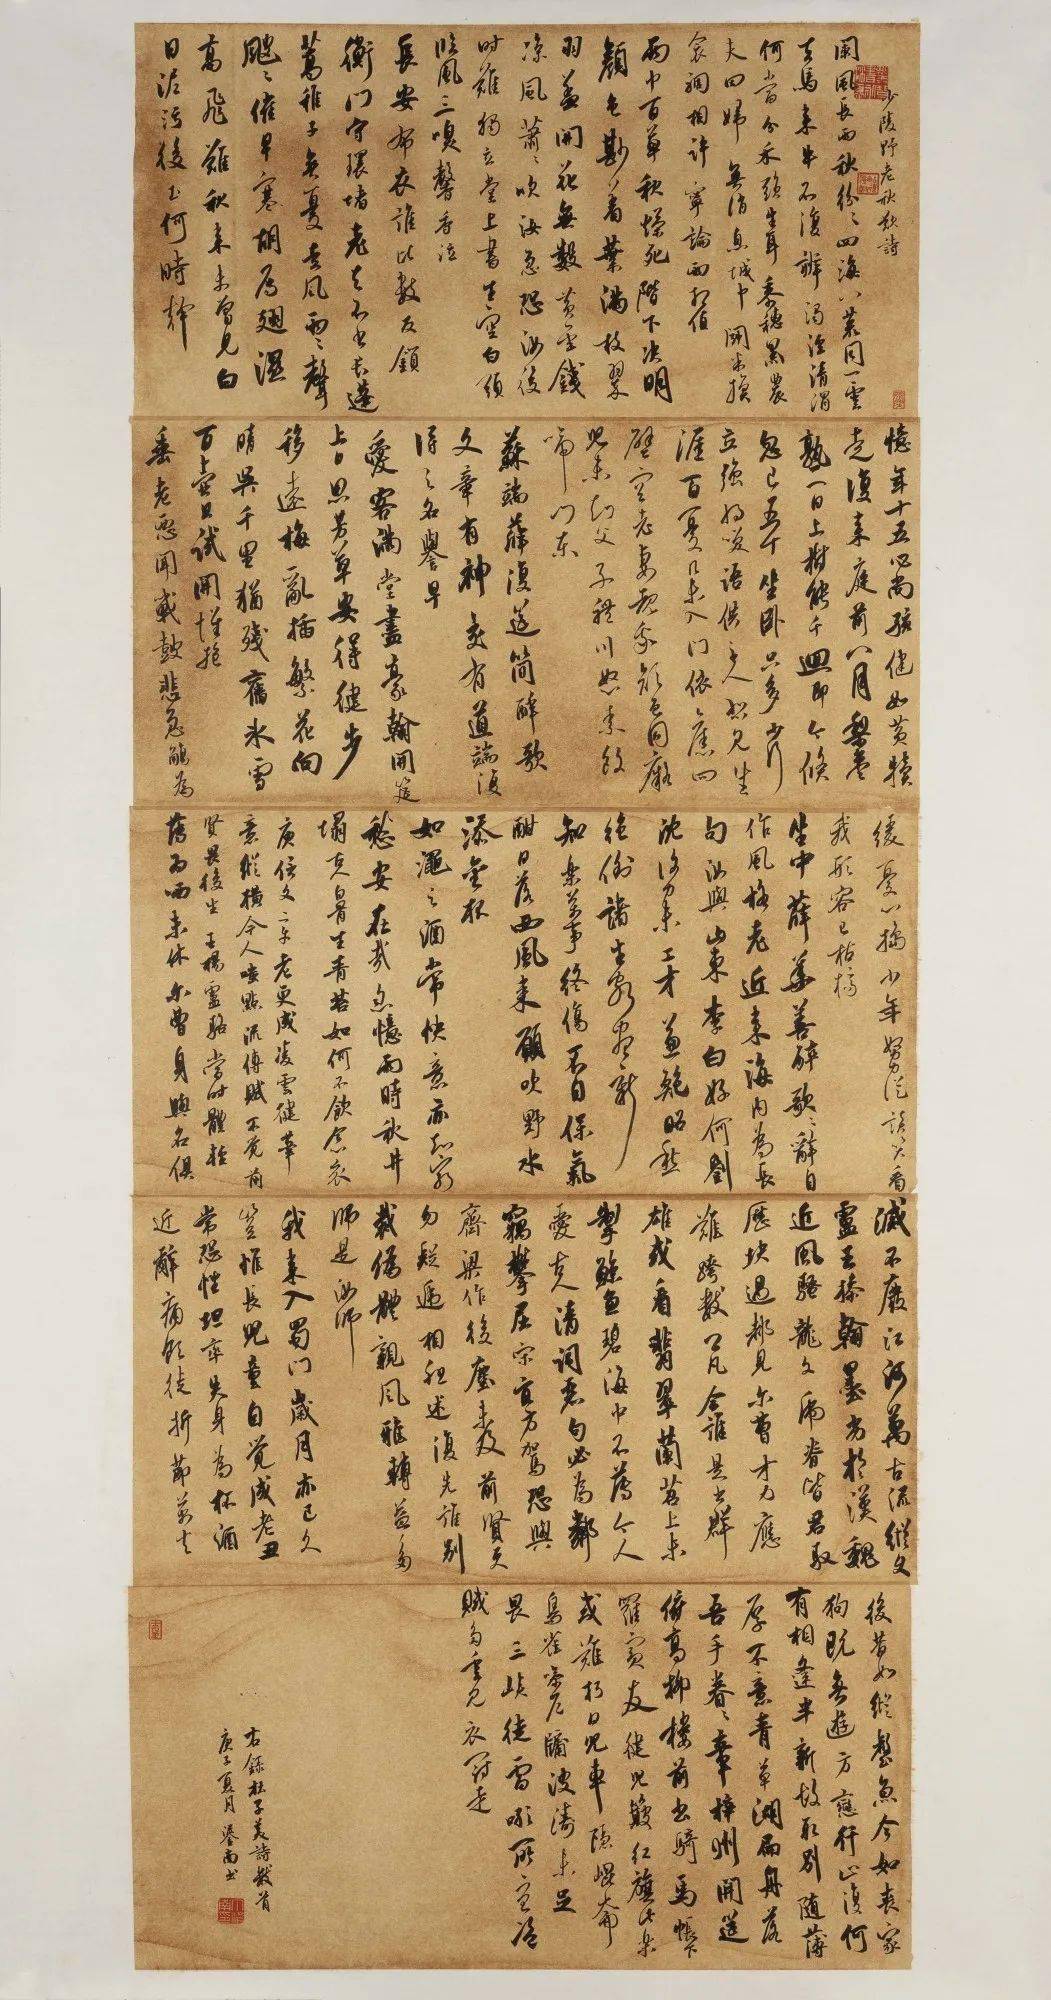 少陵野老秋歎詩
闌風長雨秋紛〻四海八荒同一雲
去馬來牛不復辨濁涇清渭
何當分禾頭生耳黍穗黑農
夫田婦無消息城中鬥米換
衾裯相許寧論兩相值
雨中百草秋爛死階下決明
顏色鮮著葉滿枝翠
羽蓋開花無數黃金錢
涼風蕭〻吹汝急恐汝後
時難獨立堂上書生空白頭
臨風三嗅馨香泣
長安布衣誰比數反鎖
衡門守環堵老夫不出長蓬
蒿稚子無憂走風雨〻聲
颼〻催早寒胡雁翅濕
高飛難秋來未曾見白
日泥污後土何時乾
憶年十五心尚孩健如黃犢
走復來庭前八月梨棗
熟一日上樹能千迴即今倏
忽已五十坐臥只多少行
立強將笑語供主人悲見生
涯百憂集入門依舊四
壁空老妻睹我顏色同癡
兒未知父子禮叫怒索飯
啼門東
蘇端薛復筵簡醉歌
文章有神交有道端復
得之名譽早
愛客滿堂盡豪翰開筵
上日思芳草安得健步
移遠梅亂插繁花向
晴昊千里猶殘舊冰雪
百壺且試開懷抱
垂老惡聞戰鼓悲急觴為
緩憂心搗少年努力縱談笑看
我形容已枯槁
坐中薛華善醉歌〻辭自
作風格老近來海內為長
句汝與山東李白好何劉
沈謝力未工才兼鮑昭愁
絕倒諸生頗盡新
知樂萬事終傷不自保氣
酣日落西風來願吹野水
添金杯
如澠之酒常快意亦知窮
愁安在哉忽憶雨時秋井
塌古人骨生青苔如何不飲令心哀
庾信文章老更成凌雲健筆
意縱橫今人嗤點流傳賦不覺前
賢畏後生王楊盧駱當時體輕
薄為文哂未休爾曹身與名俱
滅不廢江河萬古流縱使
盧王操翰墨劣於漢魏
近風騷龍文虎脊皆君馭
歷塊過都見爾曹才力應
難跨數公凡今誰是出群
雄或看翡翠蘭苕上未
掣鯨魚碧海中不薄今人
愛古人清詞麗句必為鄰
竊攀屈宋宜方駕恐與
齊梁作後塵未及前賢更
勿疑遞相祖述復先誰別
裁偽體親風雅轉益多
師是汝師
我來入蜀門歲月亦已久
豈惟長兒童自覺成老醜
常恐性坦率失身為杯酒
近辭痛飲徒折節萬夫
後昔如縱壑魚今如喪家
狗既無遊方戀行止復何
有相逢半新故取別隨薄
厚不意青草湖扁舟落
吾手眷〻章梓州開筵
俯高柳樓前出騎馬帳下
羅賓友健兒簸紅旗此樂
或難朽日車隱崑崙
鳥雀噪戶牖波濤未足
畏三峽徒雷吼所憂盜
賊多重見衣冠走
右錄杜子美詩數首
庚子夏月南書